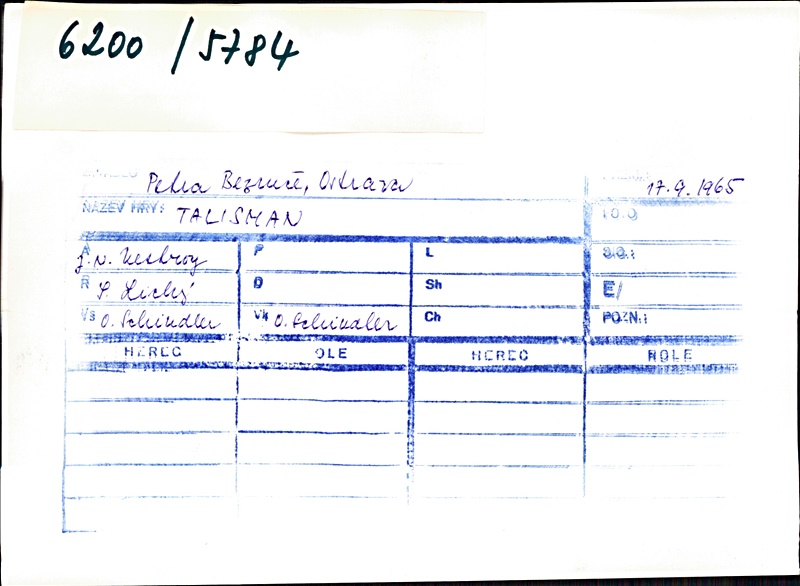 6200 / 5784
Petra Bezruče, Ostrava 17.9.1965
NÁZEV HRY: TALISMAN
A J. N. Nestroy P L
R S. Lichý D Sh E/
Vs O. Schindler Vk O. Schindler Ch POZN.:
HEREC ROLE HEREC ROLE